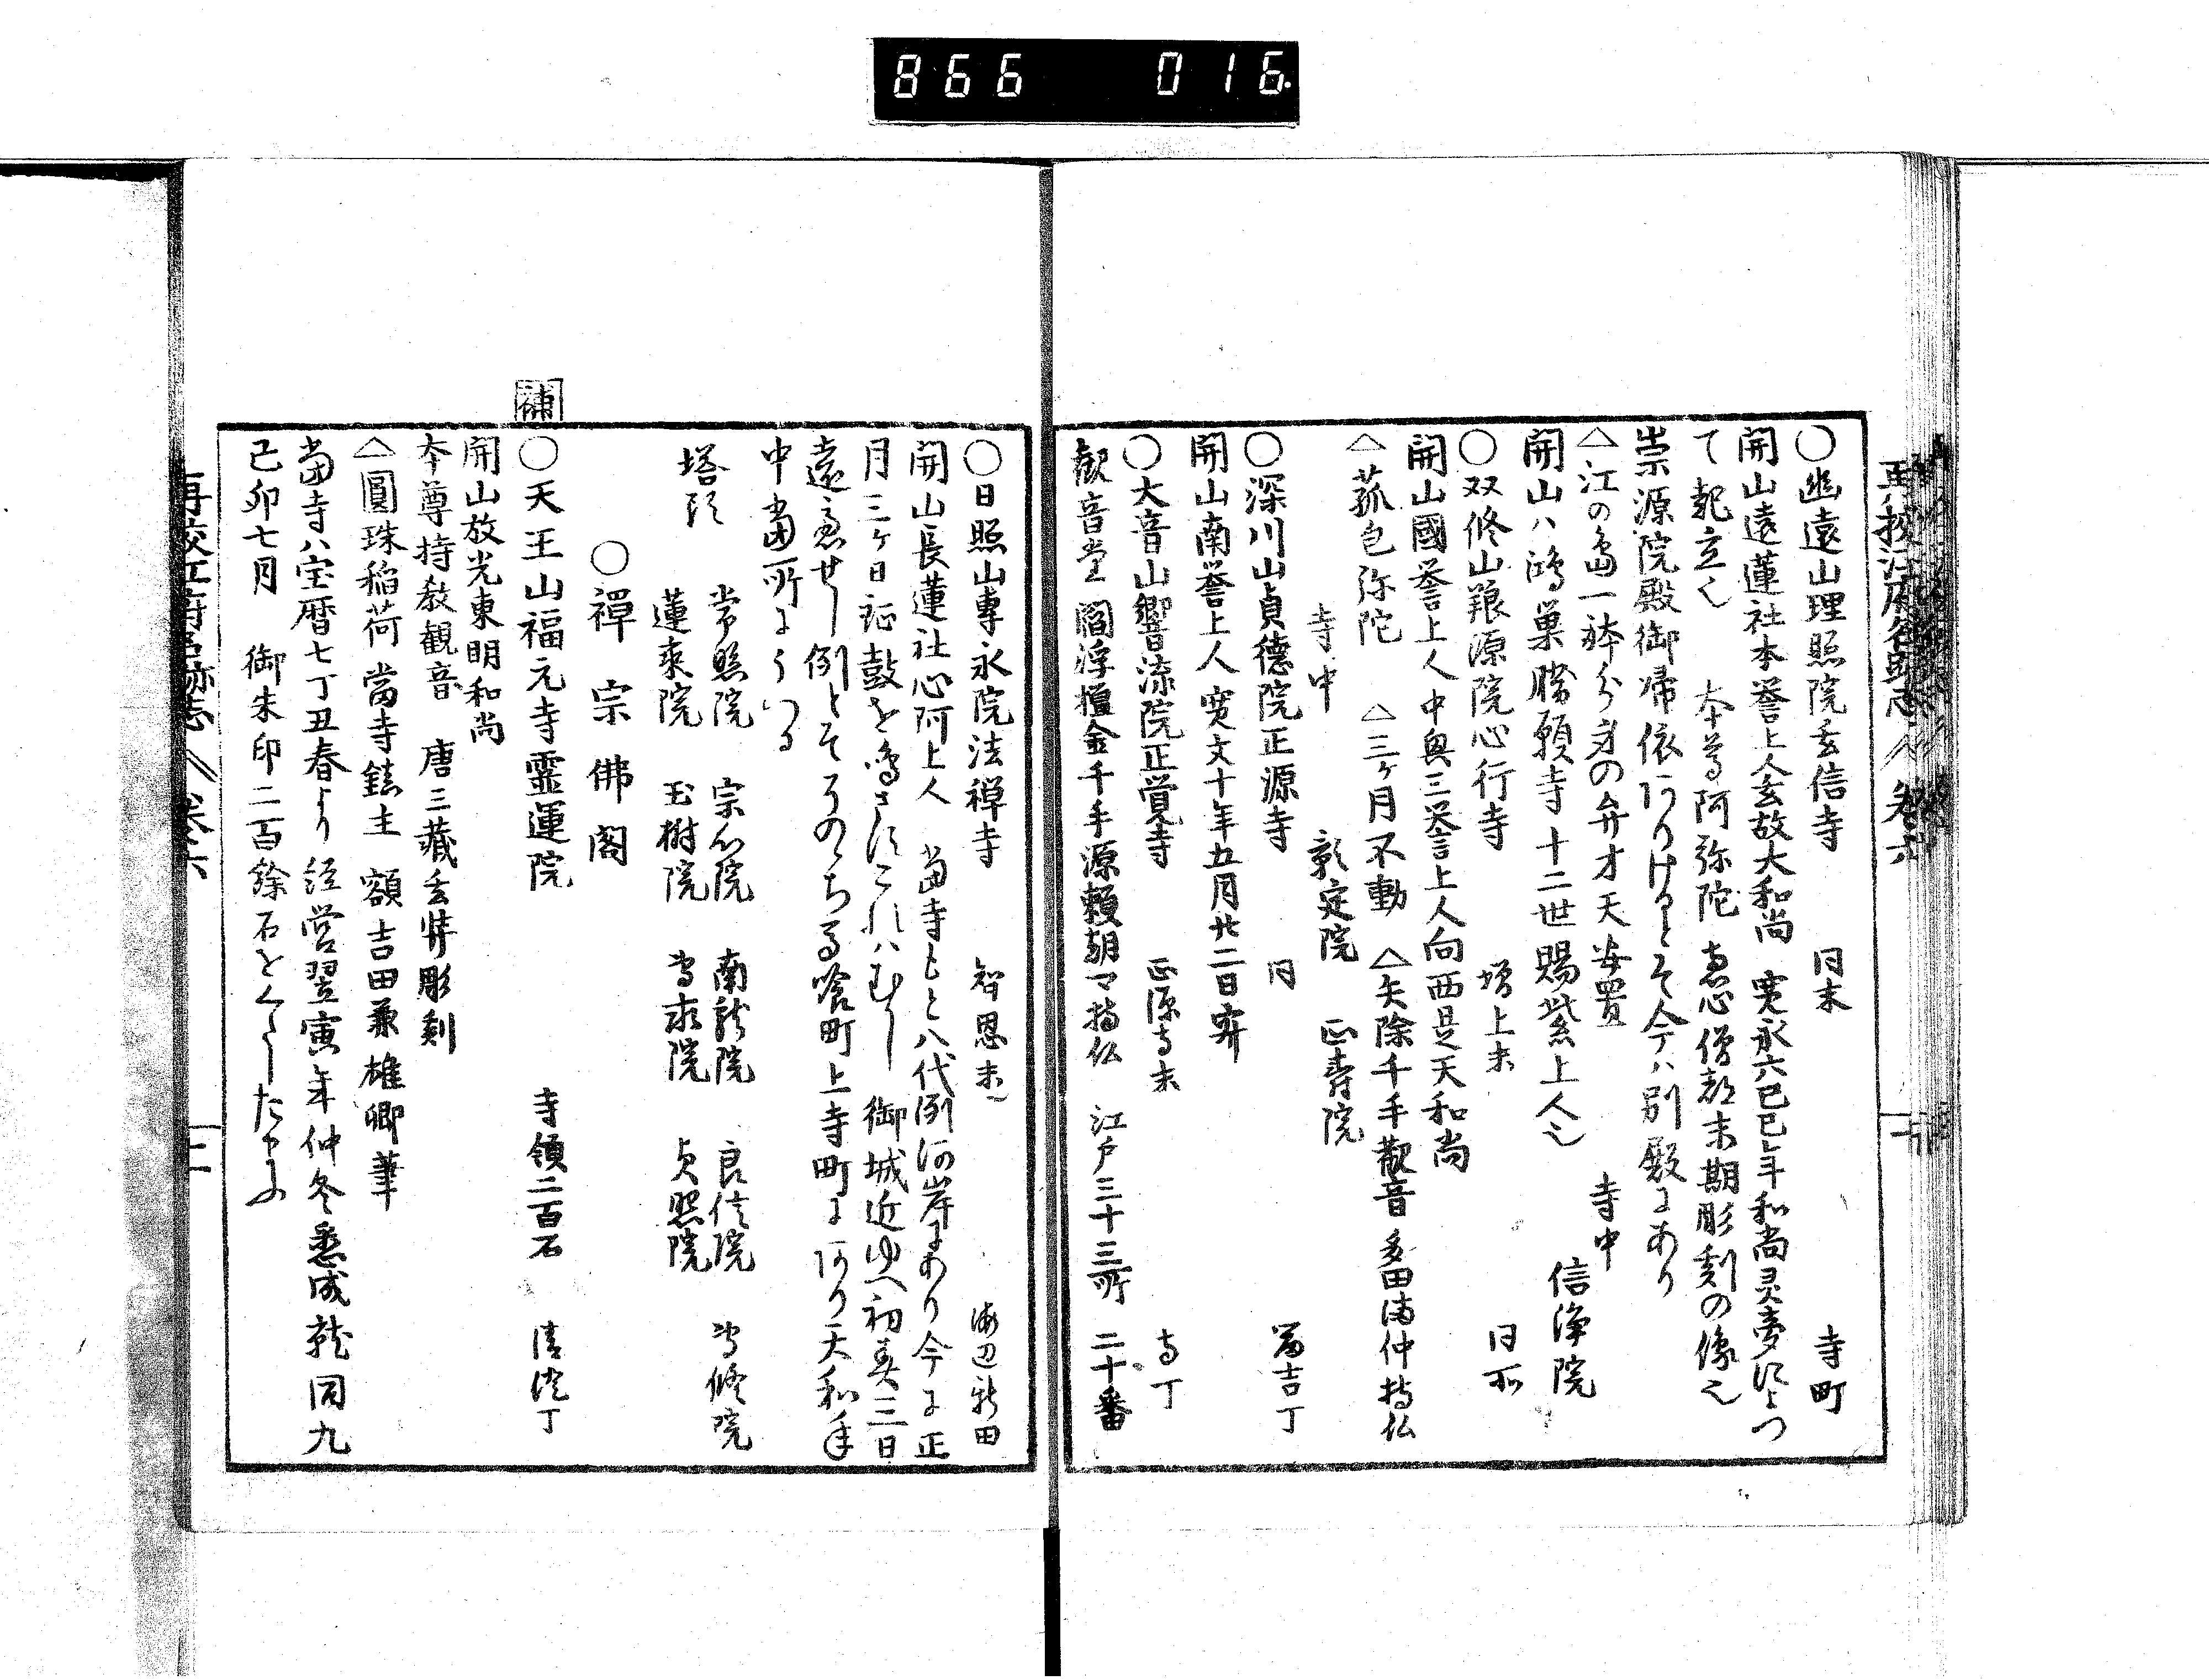 866 016
再校江府名跡志 巻六
○幽遠山理照院玄信寺 同末 寺町
開山遠蓮社本誉上人玄故大和尚 寛永六己巳年和尚灵夢によつ
て起立也 本尊阿弥陀 恵心僧都末期彫刻の像也
崇源院殿御帰依ありけるとそ今ハ別殿にあり
△江の島一体分身の弁才天安置 寺中 信浄院
開山ハ鴻巣勝願寺十二世賜紫上人也
○双修山報源院心行寺 増上末 同所
開山國誉上人中興三誉上人向西是天和尚
△菰包弥陀 △三ヶ月不動 △矢除千手観音 多田満仲持仏
寺中 彰定院 正寿院
○深川山貞徳院正源寺 同 冨吉丁
開山南誉上人寛文十年五月廿二日寂
○大音山響流院正覚寺 正源寺末 寺丁
観音堂 閻浮檀金千手源頼朝公持仏 江戸三十三所 二十番
○日照山專永院法禅寺 智恩末 海辺新田
開山長蓮社心阿上人 当寺もと八代洲河岸にあり今に正
月三ヶ日鉦鼓を鳴さすこれハむかし 御城近ゆへ初春三日
遠慮せし例とそそのゝち馬喰町上寺町にあり天和年
中当所にうつる
塔頭 常照院 宗心院 南龍院 良信院 専修院
蓮乘院 玉樹院 専求院 貞照院
○禅宗佛閣
補
○天王山福元寺霊運院 寺領二百石 清住丁
開山放光東明和尚
本尊持教観音 唐三藏玄奘彫刻
△圓珠稲荷 當寺鎮主 額吉田兼雄卿筆
当寺ハ宝暦七丁丑春より経営翌寅年仲冬悉成就同九
己卯七月 御朱印二百餘石をくたしたまふ
再校江府名跡志 巻六 二